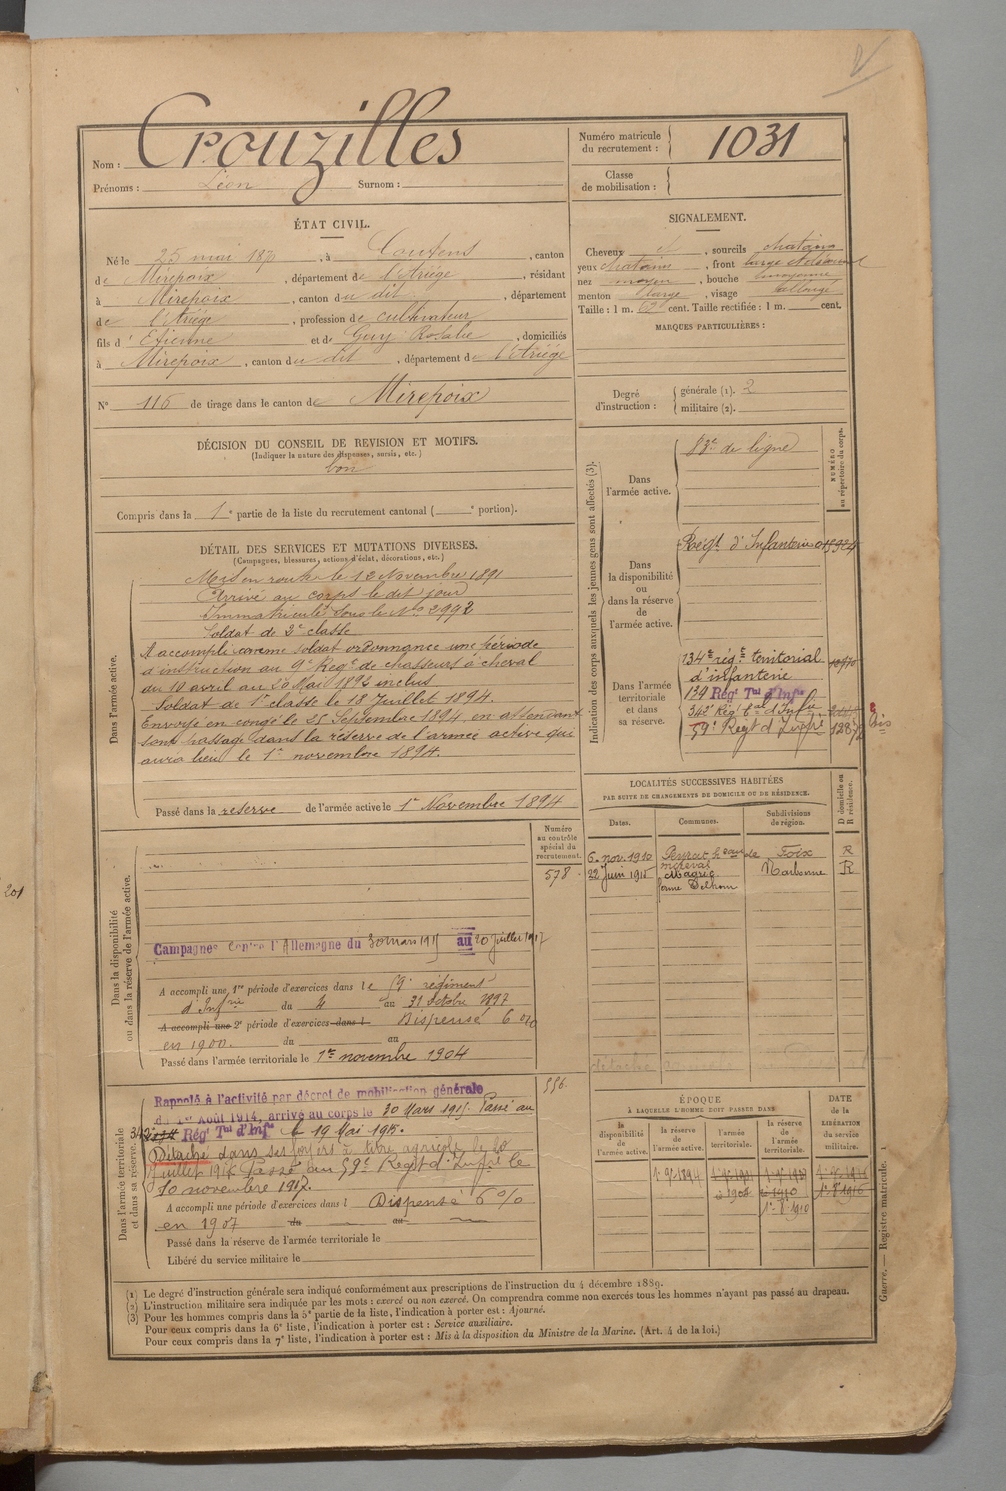 Nom : Crouzilles
Prénoms : Léon Surnom :
Numéro matricule du recrutement : 1031
Classe de mobilisation :
ÉTAT CIVIL.
Né le 25 mai 1870, à Coutens, canton
de Mirepoix, département de l'Ariège, résidant
à Mirepoix, canton du dit, département
de l'Ariège, profession de cultivateur
fils d'Etienne et de Guy Rosalie, domiciliés
à Mirepoix, canton du dit, département de l'Ariège
N° 116 de tirage dans le canton de Mirepoix
SIGNALEMENT.
Cheveux et, sourcils chatains
yeux chatains, front large
nez moyen, bouche moyenne
menton large, visage allongé
Taille : 1 m. cent. Taille rectifiée : 1 m. cent.
MARQUES PARTICULIÈRES :
Degré d'instruction : générale (1). 2
militaire (2).
DÉCISION DU CONSEIL DE REVISION ET MOTIFS.
(Indiquer la nature des dispenses, sursis, etc.)
bon
Compris dans la 1e partie de la liste du recrutement cantonal ( e portion).
DÉTAIL DES SERVICES ET MUTATIONS DIVERSES.
(Campagnes, blessures, actions d'éclat, décorations, etc.)
Dans l'armée active.
Mis en route le 12 Novembre 1891
Arrivé au corps le dit jour
Immatriculé sous le No 2992
Soldat de 2e classe
A accompli comme soldat ordonnance une période
d'instruction au 9e Régt de chasseurs à cheval
du 10 avril au 20 Mai 1894 inclus
Soldat de 1e classe le 18 Juillet 1894.
Envoyé en congé le 25 Septembre 1894 en attendant
son passage dans la réserve de l'armée active qui
aura lieu le 1er novembre 1894.
Passé dans la réserve de l'armée active le 1er Novembre 1894
Indication des corps auxquels les jeunes gens sont affectés (3).
NUMÉRO au répertoire du corps.
Dans l'armée active.
83e de ligne
Dans la disponibilité ou dans la réserve de l'armée active.
Régt d'Infanterie
Dans l'armée territoriale et dans sa réserve.
134e régt territorial
d'infanterie
134 Régt Tal d'Infie
342e Régt tal d'Infie
59e Régt d'Infie
bis
LOCALITÉS SUCCESSIVES HABITÉES
PAR SUITE DE CHANGEMENTS DE DOMICILE OU DE RÉSIDENCE.
Dates. Communes. Subdivisions de région. D domicile ou R résidence.
6. nov. 1910 Foix R
22 Juin 1911 Narbonne R
Numéro au contrôle spécial du recrutement.
578
Dans la disponibilité ou dans la réserve de l'armée active.
Campagnes contre l'Allemagne du 30 mars 1915 au 20 juillet 1917
A accompli une 1re période d'exercices dans le 59e régiment
d'Infrie du 4 au 31 octobre 1897
A accompli une 2e période d'exercices dans l Dispensé 6 0/0
en 1900. du au
Passé dans l'armée territoriale le 1er novembre 1904
556.
Dans l'armée territoriale et dans sa réserve.
Rappelé à l'activité par décret de mobilisation générale
du 1er Août 1914, arrivé au corps le 30 Mars 1915. Passé au
342e Régt Tal d'Infie le 19 Mai 1915.
Détaché dans ses foyers à titre agricole le 20
Juillet 1917 Passé au 59e Régt d'Infie le
10 novembre 1917.
A accompli une période d'exercices dans l Dispensé 6 0/0
en 1907 du au
Passé dans la réserve de l'armée territoriale le
Libéré du service militaire le
ÉPOQUE
À LAQUELLE L'HOMME DOIT PASSER DANS
la disponibilité de l'armée active. la réserve de l'armée active. l'armée territoriale. la réserve de l'armée territoriale.
DATE de la LIBÉRATION du service militaire.
(1) Le degré d'instruction générale sera indiqué conformément aux prescriptions de l'instruction du 4 décembre 1889.
(2) L'instruction militaire sera indiquée par les mots : exercé ou non exercé. On comprendra comme non exercés tous les hommes n'ayant pas passé au drapeau.
(3) Pour les hommes compris dans la 5e partie de la liste, l'indication à porter est : Ajourné.
Pour ceux compris dans la 6e liste, l'indication à porter est : Service auxiliaire.
Pour ceux compris dans la 7e liste, l'indication à porter est : Mis à la disposition du Ministre de la Marine. (Art. 4 de la loi.)
Guerre. — Registre matricule. 1
201